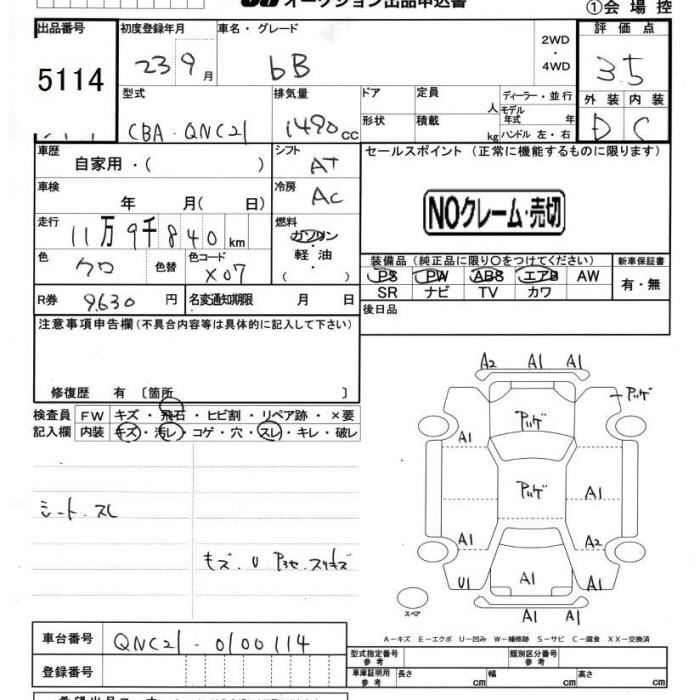 オークション出品申込書
①会場控
出品番号
5114
初度登録年月
23 9月
車名・グレード
bB
2WD
・
4WD
評価点
3.5
外装 内装
D C
型式
CBA-QNC21
排気量
1490cc
ドア
形状
定員 人
積載 kg
ディーラー・並行
モデル
年式 年
ハンドル 左・右
車歴
自家用・( )
シフト
AT
車検
年 月( 日)
冷房
AC
走行
11万9千840km
燃料
ガソリン
軽油
( )
色
クロ
色替
色コード
X07
R券 9,630円
名変通知期限 月 日
セールスポイント (正常に機能するものに限ります)
NOクレーム・売切
装備品(純正品に限り〇をつけてください)
PS PW ABS エアB AW
SR ナビ TV カワ
新車保証書
有・無
後日品
注意事項申告欄(不具合内容等は具体的に記入して下さい)
修復歴 有〔箇所 〕
検査員
記入欄
FW キズ・飛石・ヒビ割・リペア跡・×要
内装 キズ・汚レ・コゲ・穴・スレ・キレ・破レ
シート・スレ
キズ・U
A2 A1 A1
アルゲ
アルゲ
A1
アルゲ
A1
A1
A2
U1
A1
A1 A1
スペア
A−キズ E−エクボ U−凹み W−補修跡 S−サビ C−腐食 XX−交換済
車台番号
QNC21-0100114
登録番号
型式指定番号
参考
類別区分番号
参考
車庫証明用
参考
長さ cm
幅 cm
高さ cm